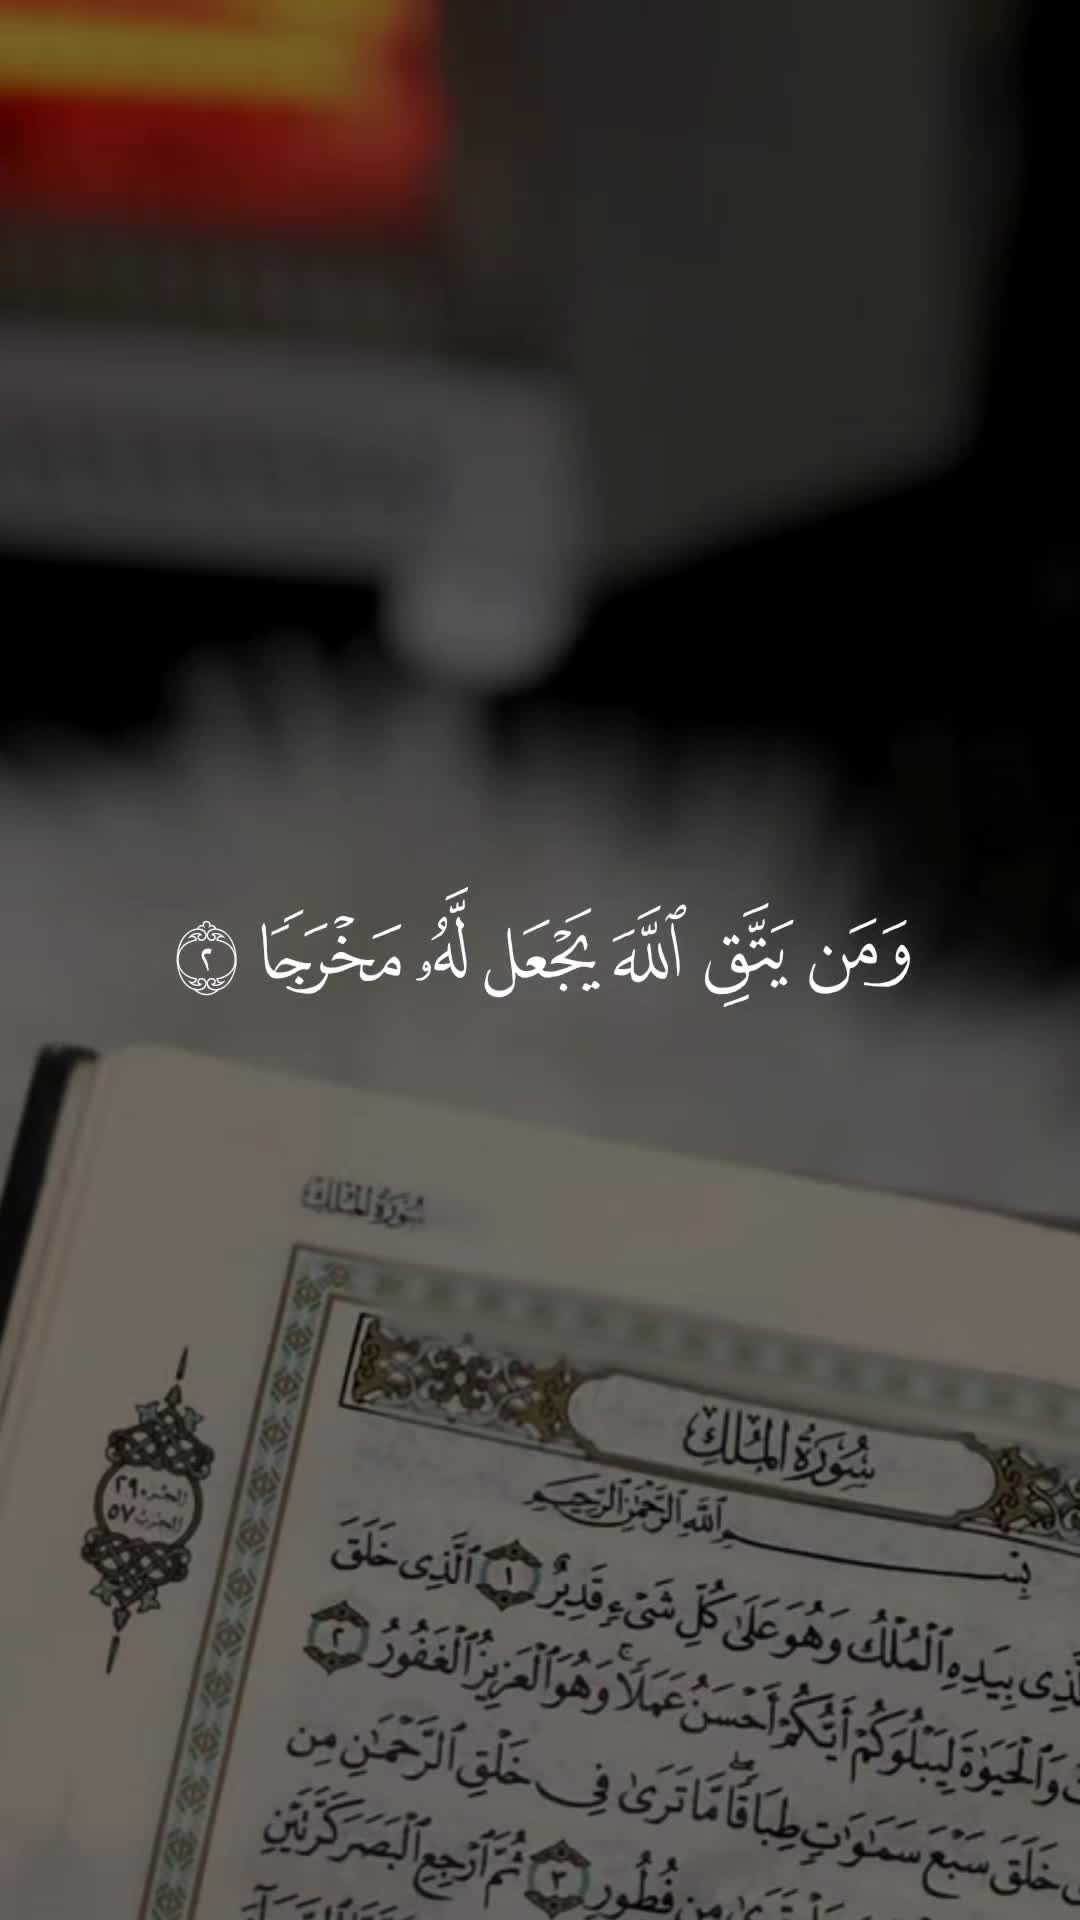 وَمَن يَتَّقِ ٱللَّهَ يَجْعَل لَّهُۥ مَخْرَجًا ٢
سُورَةُ المُلْكِ
سُورَةُ المُلْكِ
الجزء ٢٩
الحزب ٥٧
بِسْمِ ٱللَّهِ ٱلرَّحْمَٰنِ ٱلرَّحِيمِ
بِيَدِهِ ٱلْمُلْكُ وَهُوَ عَلَىٰ كُلِّ شَىْءٍ قَدِيرٌ ١ ٱلَّذِى خَلَقَ
وَٱلْحَيَوٰةَ لِيَبْلُوَكُمْ أَيُّكُمْ أَحْسَنُ عَمَلًا ۚ وَهُوَ ٱلْعَزِيزُ ٱلْغَفُورُ ٢
خَلَقَ سَبْعَ سَمَٰوَٰتٍ طِبَاقًا ۖ مَّا تَرَىٰ فِى خَلْقِ ٱلرَّحْمَٰنِ مِن
تَرَىٰ مِن فُطُورٍ ٣ ثُمَّ ٱرْجِعِ ٱلْبَصَرَ كَرَّتَيْنِ